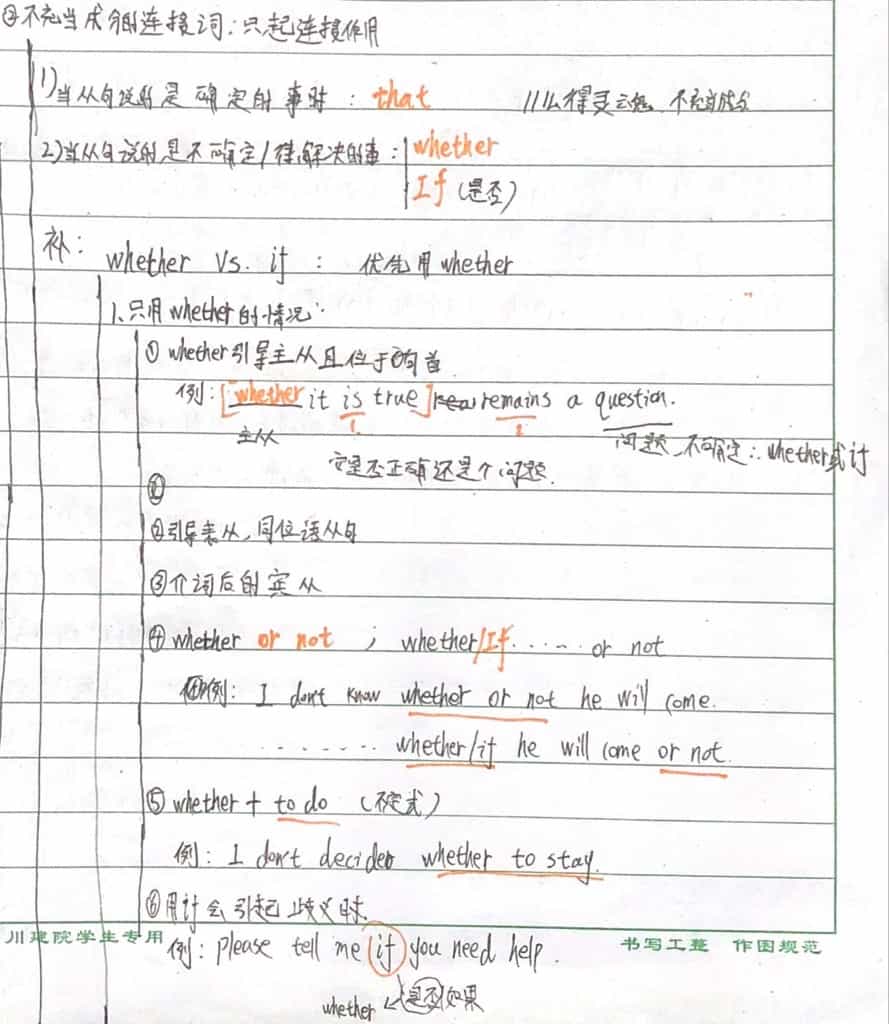 ②不充当成分的连接词:只起连接作用
1)当从句说的是确定的事时:that //从得灵活, 不充当成分
2)当从句说的是不确定/待解决的事:whether
If(是否)
补:
whether Vs. if : 优先用whether
1、只用whether的情况:
① whether引导主从且位于句首
例:[whether it is true] remains a question.
主从 1 2 问题、不确定∴whether或if
它是否正确还是个问题.
②引导表从,同位语从句
③介词后的宾从
④ whether or not ; whether/If ...... or not
例: I don't know whether or not he will come.
........ whether/if he will come or not.
⑤ whether + to do (不定式)
例: I don't decided whether to stay.
⑥用if会引起歧义时.
川建院学生专用 书写工整 作图规范
例: please tell me if you need help.
whether 是否/如果